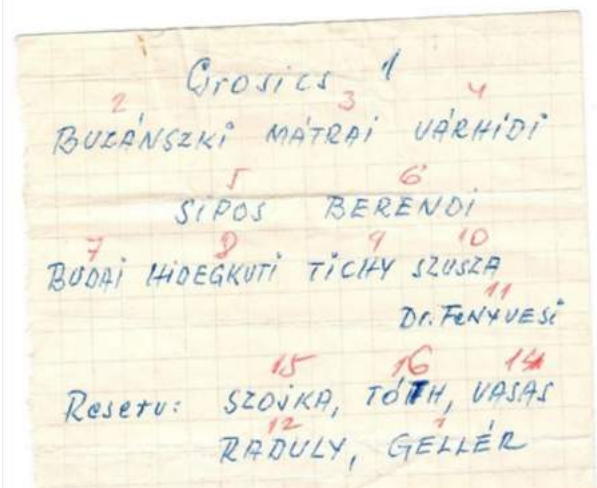 Grosics 1
2 3 4
BUZÁNSZKI MÁTRAI VÁRHIDI
5 6
SIPOS BERENDI
7 8 9 10
BUDAI HIDEGKUTI TICHY SZUSZA
11
Dr. FENYVESI
15 16 14
Reserv: SZOJKA, TÓTH, VASAS
12 1
RADULY, GELLÉR